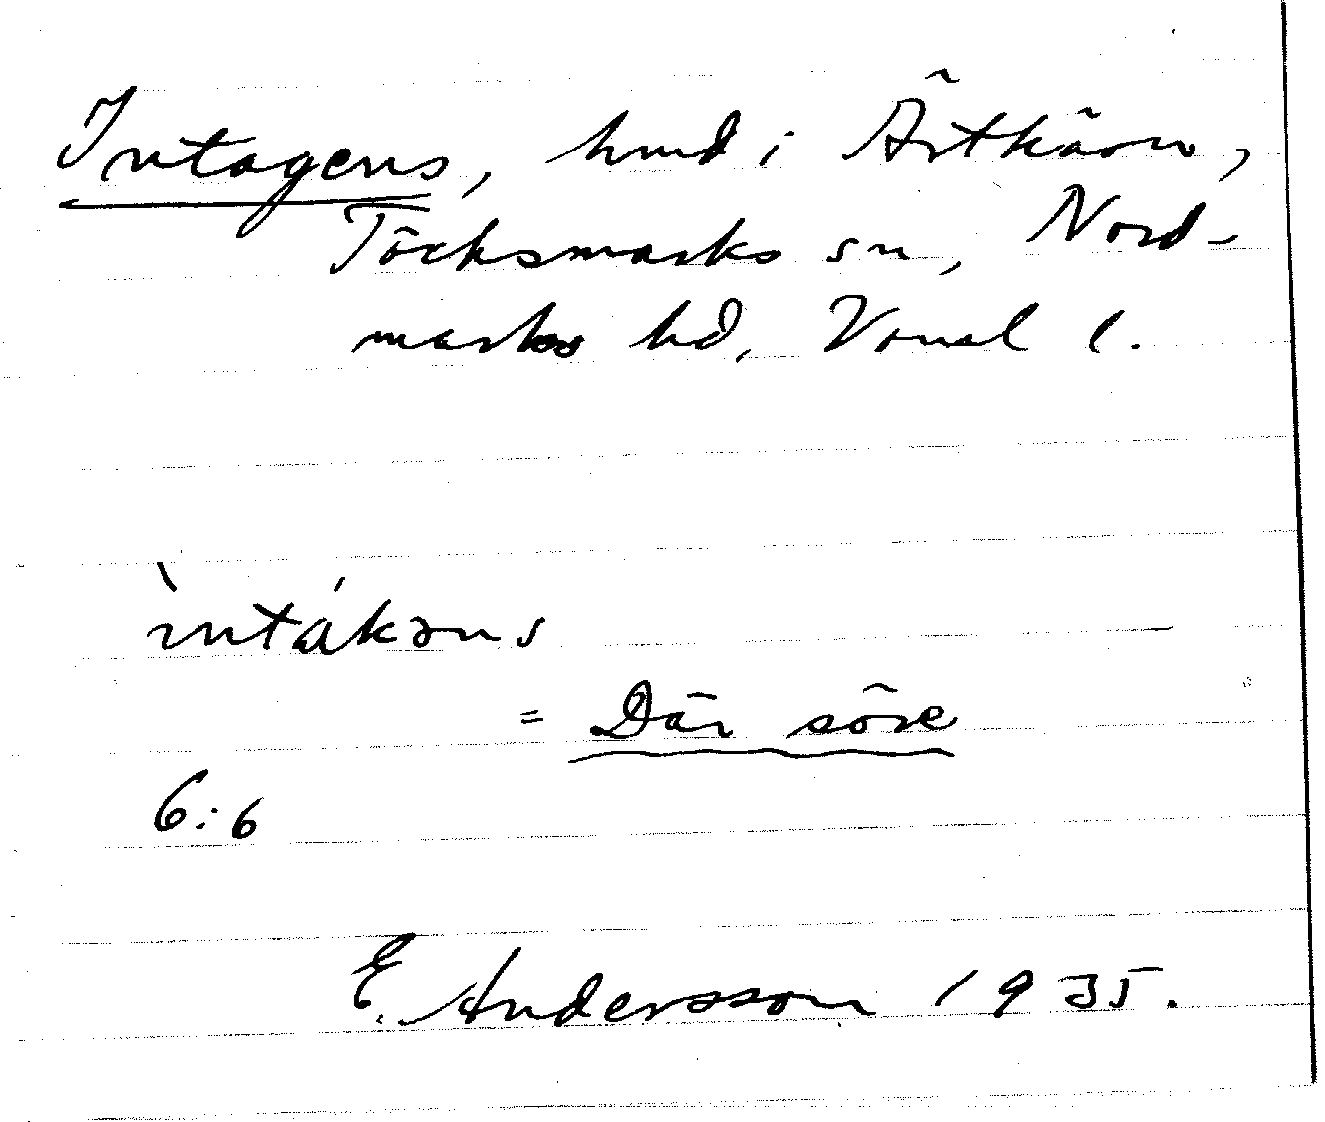 Intagens, hmd i Ärtkärn,
Töcksmarks sn, Nord-
marks hd, Vrml l.
ìntákəns
= Där söre
6:6
E. Andersson 1935.